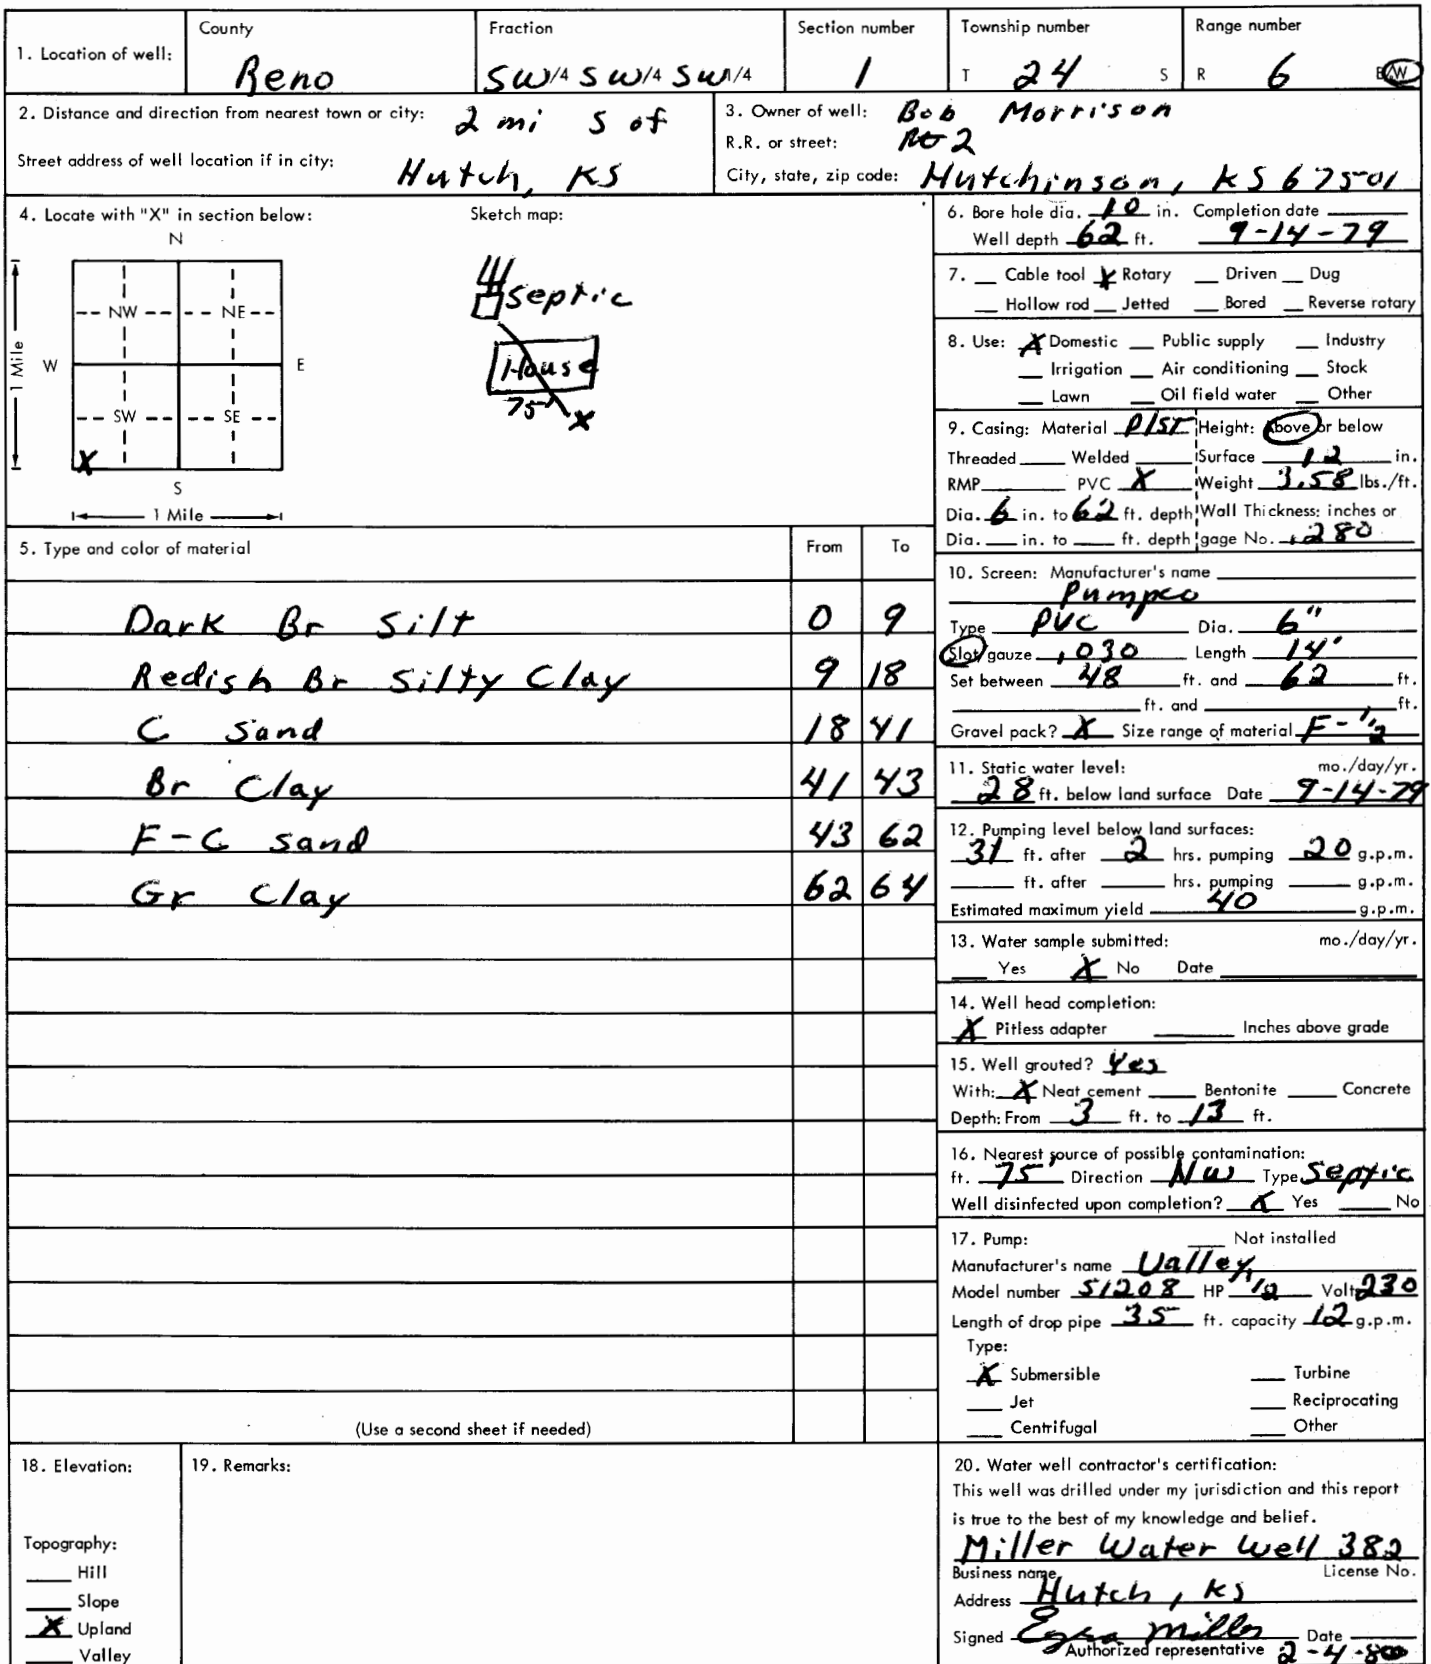 County Fraction Section number Township number Range number
1. Location of well: Reno SW1/4 SW1/4 SW1/4 1 T 24 S R 6 E/W
2. Distance and direction from nearest town or city: 2 mi S of
Street address of well location if in city: Hutch, KS
3. Owner of well: Bob Morrison
R.R. or street: Rt 2
City, state, zip code: Hutchinson, KS 67501
4. Locate with "X" in section below: Sketch map:
N
NW NE
W E
1 Mile
SW SE
X
S
1 Mile
Septic
House
75' X
5. Type and color of material From To
Dark Br Silt 0 9
Redish Br Silty Clay 9 18
C Sand 18 41
Br Clay 41 43
F-C Sand 43 62
Gr Clay 62 64
(Use a second sheet if needed)
6. Bore hole dia. 10 in. Completion date
Well depth 62 ft. 9-14-79
7. Cable tool X Rotary Driven Dug
Hollow rod Jetted Bored Reverse rotary
8. Use: X Domestic Public supply Industry
Irrigation Air conditioning Stock
Lawn Oil field water Other
9. Casing: Material PlST Height: Above or below
Threaded Welded Surface 12 in.
RMP PVC X Weight 3.58 lbs./ft.
Dia. 6 in. to 62 ft. depth Wall Thickness: inches or
Dia. in. to ft. depth gage No. .280
10. Screen: Manufacturer's name
Pumpco
Type PVC Dia. 6"
Slot/gauze .030 Length 14'
Set between 48 ft. and 62 ft.
ft. and ft.
Gravel pack? X Size range of material F-1/2
11. Static water level: mo./day/yr.
28 ft. below land surface Date 9-14-79
12. Pumping level below land surfaces:
31 ft. after 2 hrs. pumping 20 g.p.m.
ft. after hrs. pumping g.p.m.
Estimated maximum yield 40 g.p.m.
13. Water sample submitted: mo./day/yr.
Yes X No Date
14. Well head completion:
X Pitless adapter Inches above grade
15. Well grouted? Yes
With: X Neat cement Bentonite Concrete
Depth: From 3 ft. to 13 ft.
16. Nearest source of possible contamination:
ft. 75' Direction NW Type Septic
Well disinfected upon completion? X Yes No
17. Pump: Not installed
Manufacturer's name Valley
Model number S1208 HP 1/2 Volts 230
Length of drop pipe 35 ft. capacity 12 g.p.m.
Type:
X Submersible Turbine
Jet Reciprocating
Centrifugal Other
18. Elevation:
Topography:
Hill
Slope
X Upland
Valley
19. Remarks:
20. Water well contractor's certification:
This well was drilled under my jurisdiction and this report
is true to the best of my knowledge and belief.
Miller Water Well 382
Business name License No.
Address Hutch, KS
Signed Ezra Miller Date
Authorized representative 2-4-80